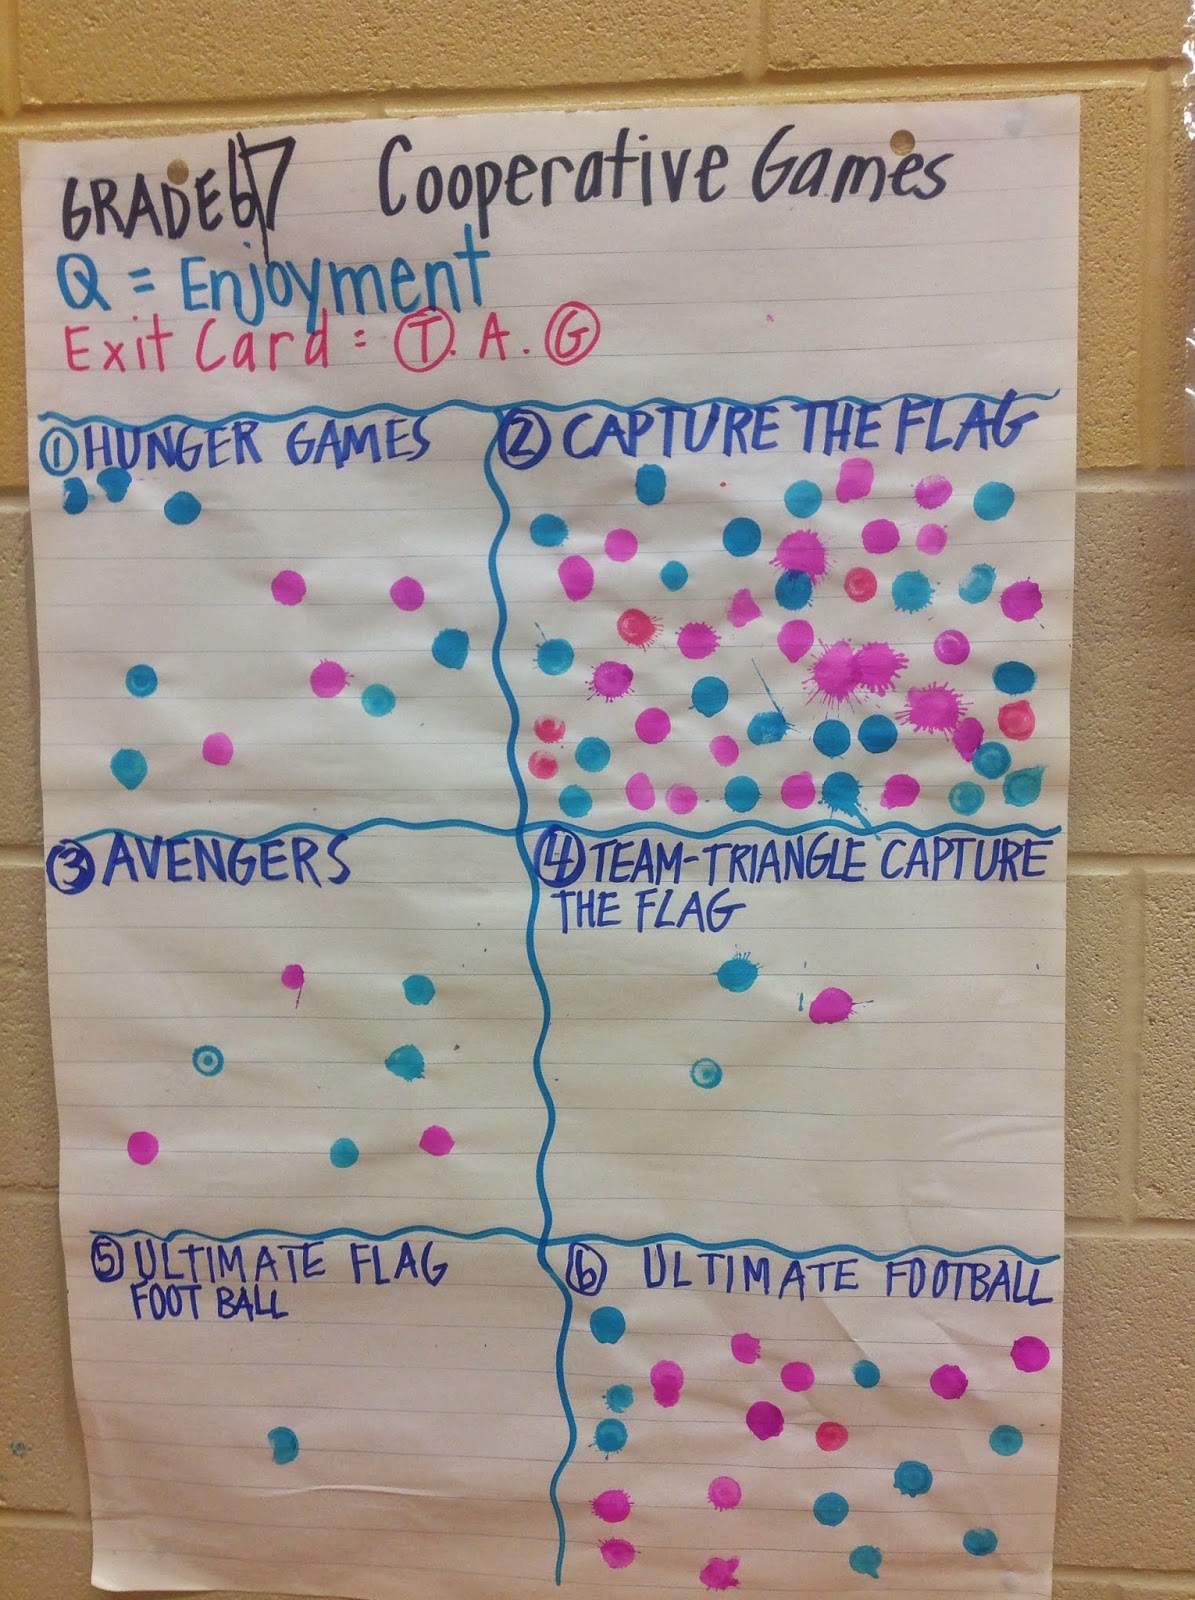 GRADE 6/7 Cooperative Games
Q = Enjoyment
Exit Card = T. A. G
1 HUNGER GAMES
2 CAPTURE THE FLAG
3 AVENGERS
4 TEAM-TRIANGLE CAPTURE
THE FLAG
5 ULTIMATE FLAG
FOOT BALL
6 ULTIMATE FOOTBALL